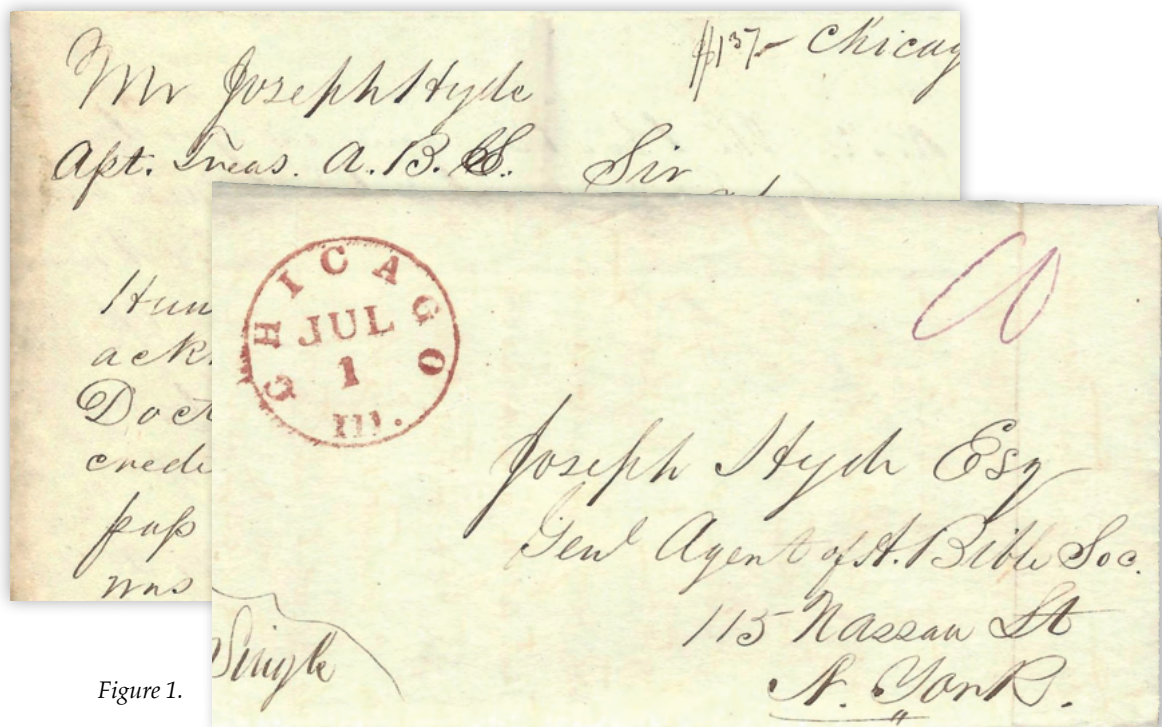 $137- Chicag
Mr Joseph Hyde
Asst. Treas. A. B. S. Sir
Hun
ack
Doct
credi
pass
was
CHICAGO
JUL
1
Ill.
Joseph Hyde Esq
Genl Agent of A. Bible Soc.
115 Nassau St
N. York.
Single
Figure 1.